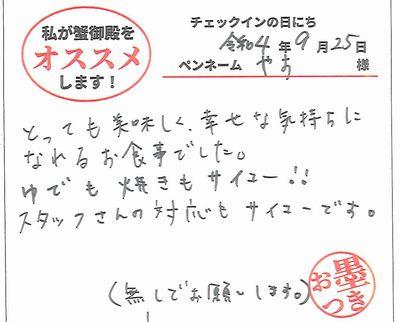 私が蟹御殿を
オススメ
します！
チェックインの日にち
令和4年9月25日
ペンネーム やお 様
とっても美味しく、幸せな気持ちに
なれるお食事でした。
ゆでも焼きもサイコー!!
スタッフさんの対応もサイコーです。
(無しでお願いします。)
お墨つき